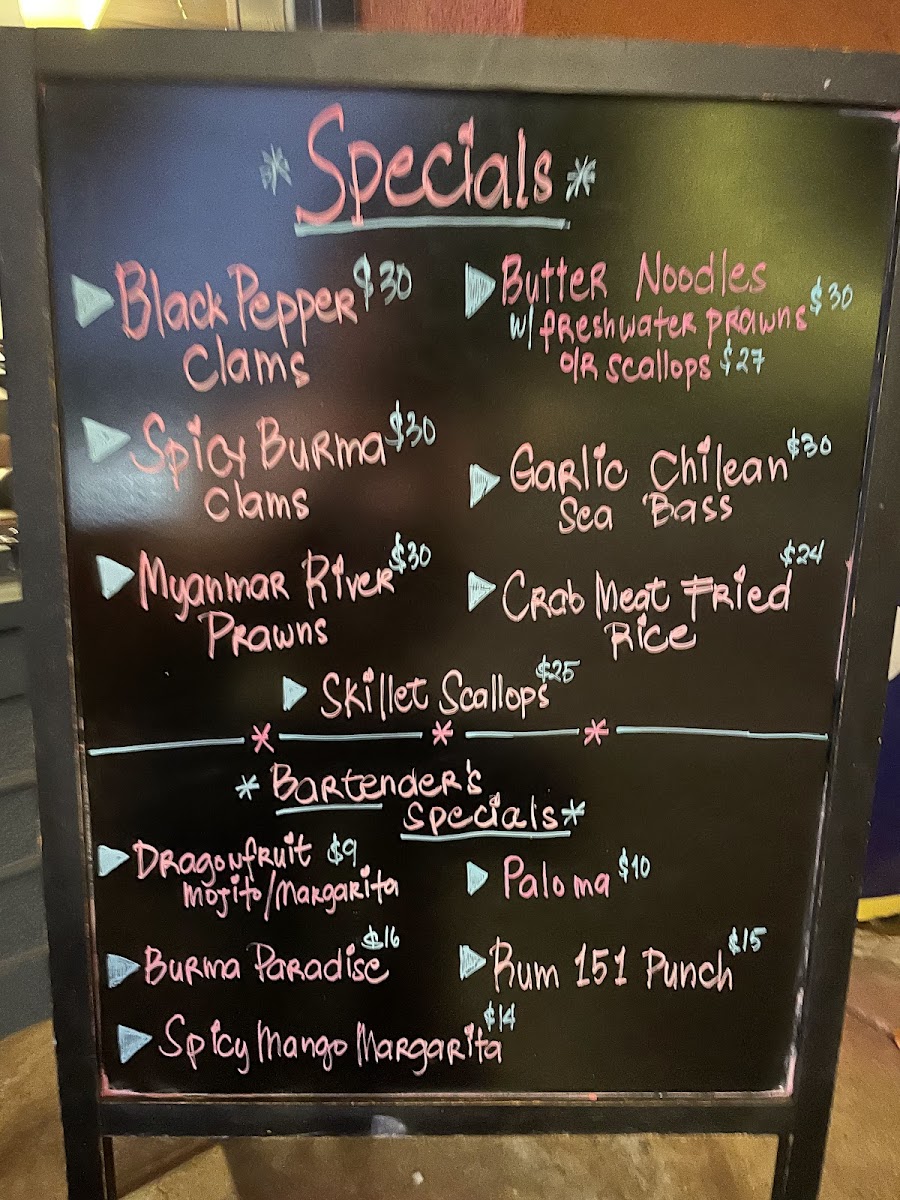 * Specials *
Black Pepper $30
Clams
Spicy Burma $30
Clams
Myanmar River $30
Prawns
Butter Noodles
w/ freshwater prawns $30
o/r scallops $27
Garlic Chilean $30
Sea Bass
Crab Meat Fried $24
Rice
Skillet Scallops $25
* Bartender's
Specials *
Dragonfruit $9
Mojito/Margarita
Burma Paradise $16
Spicy Mango Margarita $14
Paloma $10
Rum 151 Punch $15